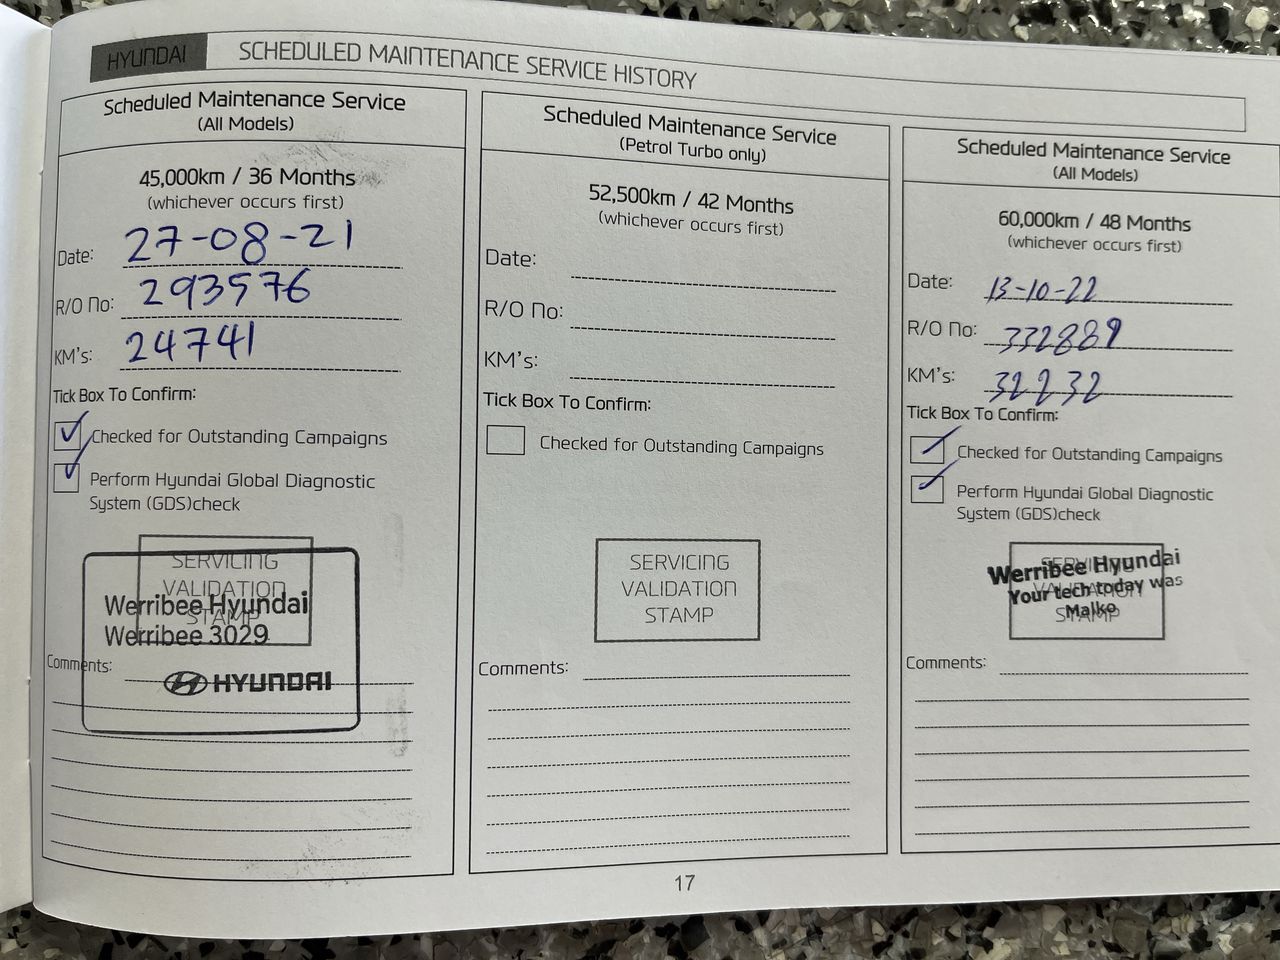 HYUNDAI
SCHEDULED MAINTENANCE SERVICE HISTORY
Scheduled Maintenance Service
(All Models)
45,000km / 36 Months
(whichever occurs first)
Date: 27-08-21
R/O No: 293576
KM's: 24741
Tick Box To Confirm:
Checked for Outstanding Campaigns
Perform Hyundai Global Diagnostic
System (GDS)check
SERVICING
VALIDATION
STAMP
Werribee Hyundai
Werribee 3029
HYUNDAI
Comments:
Scheduled Maintenance Service
(Petrol Turbo only)
52,500km / 42 Months
(whichever occurs first)
Date:
R/O No:
KM's:
Tick Box To Confirm:
Checked for Outstanding Campaigns
SERVICING
VALIDATION
STAMP
Comments:
Scheduled Maintenance Service
(All Models)
60,000km / 48 Months
(whichever occurs first)
Date: 13-10-22
R/O No: 332889
KM's: 32232
Tick Box To Confirm:
Checked for Outstanding Campaigns
Perform Hyundai Global Diagnostic
System (GDS)check
SERVICING
VALIDATION
STAMP
Werribee Hyundai
Your tech today was
Malko
Comments:
17